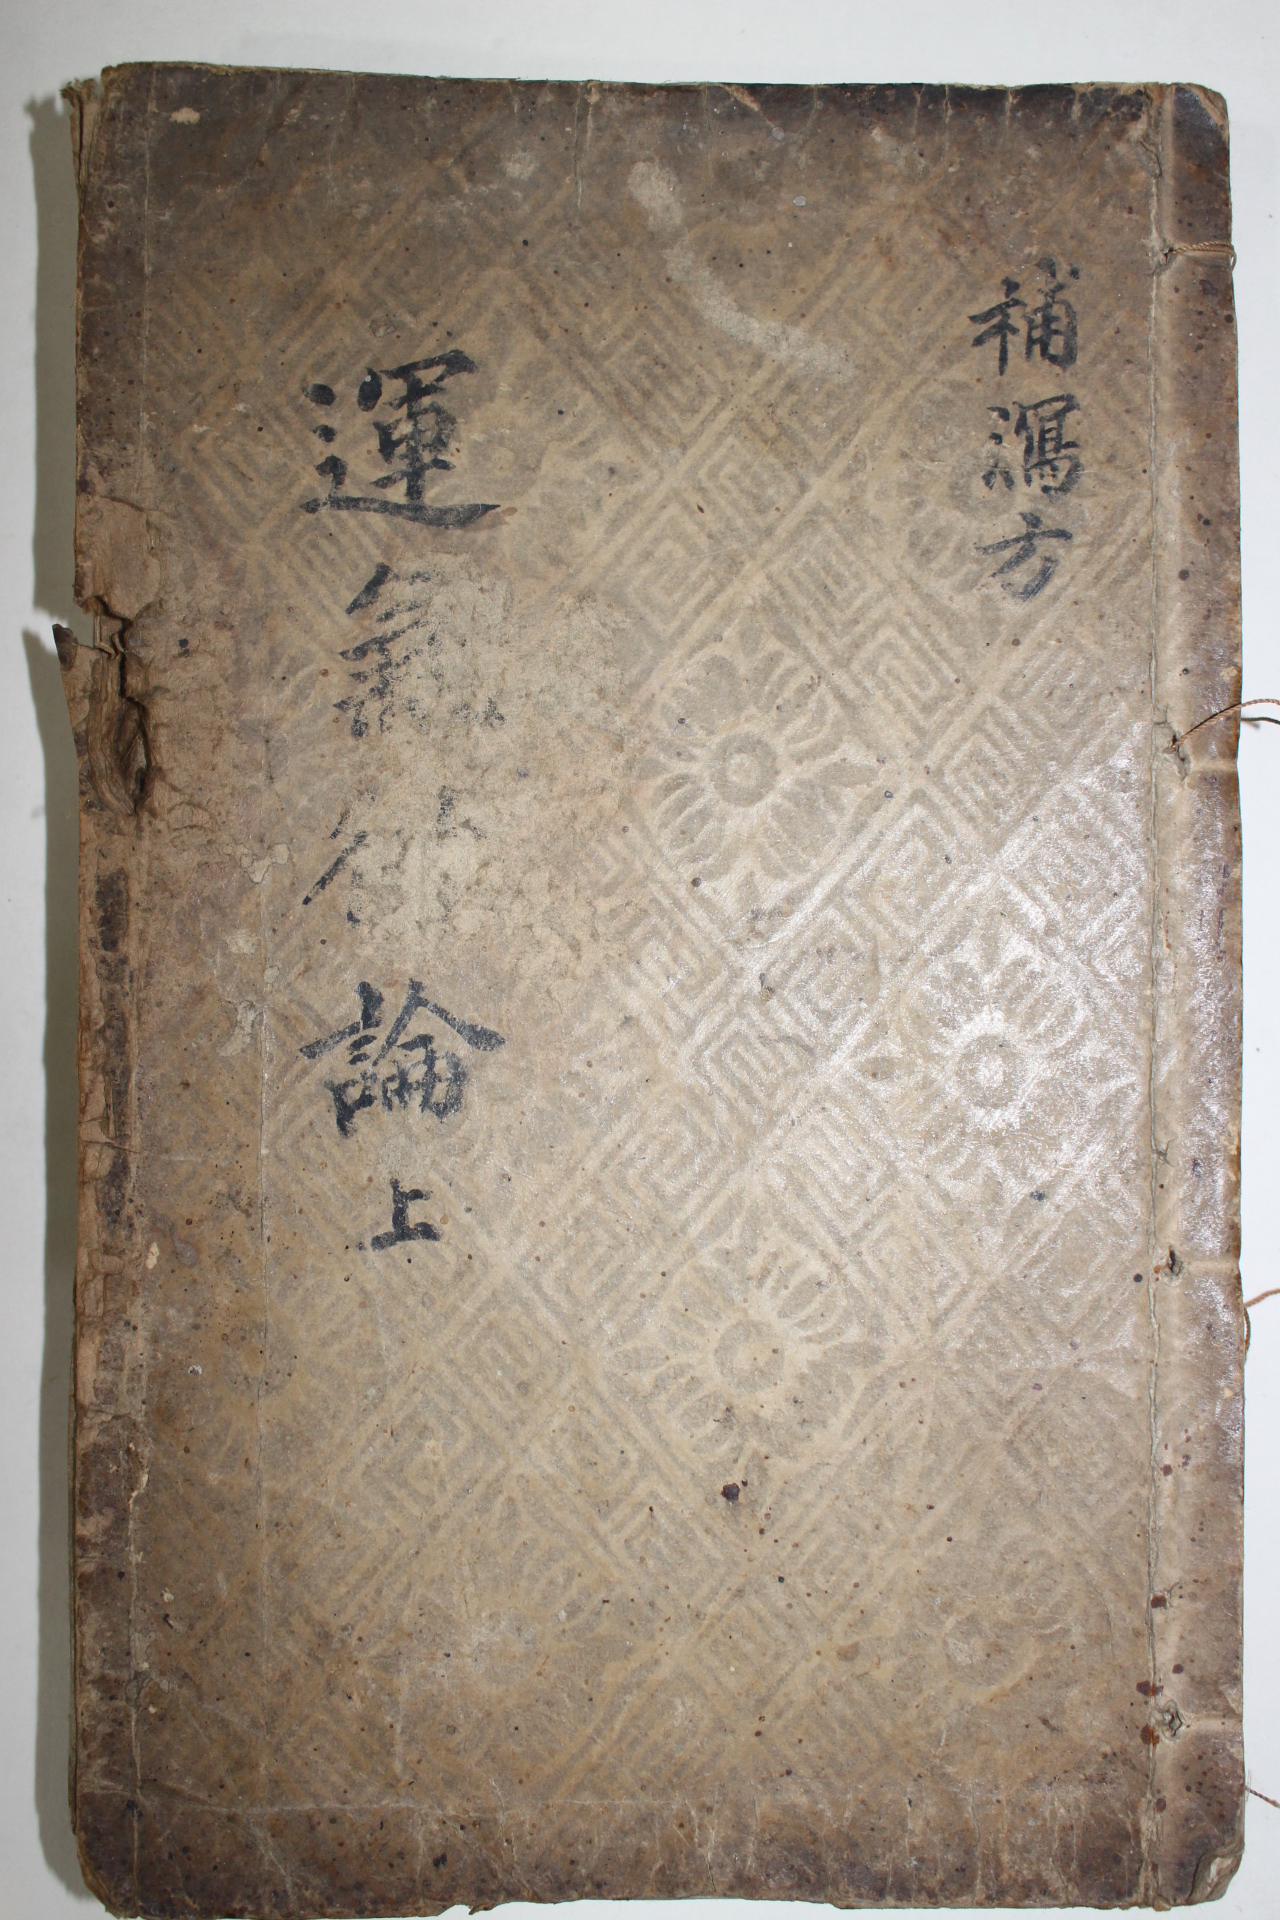 補瀉方
運氣論上